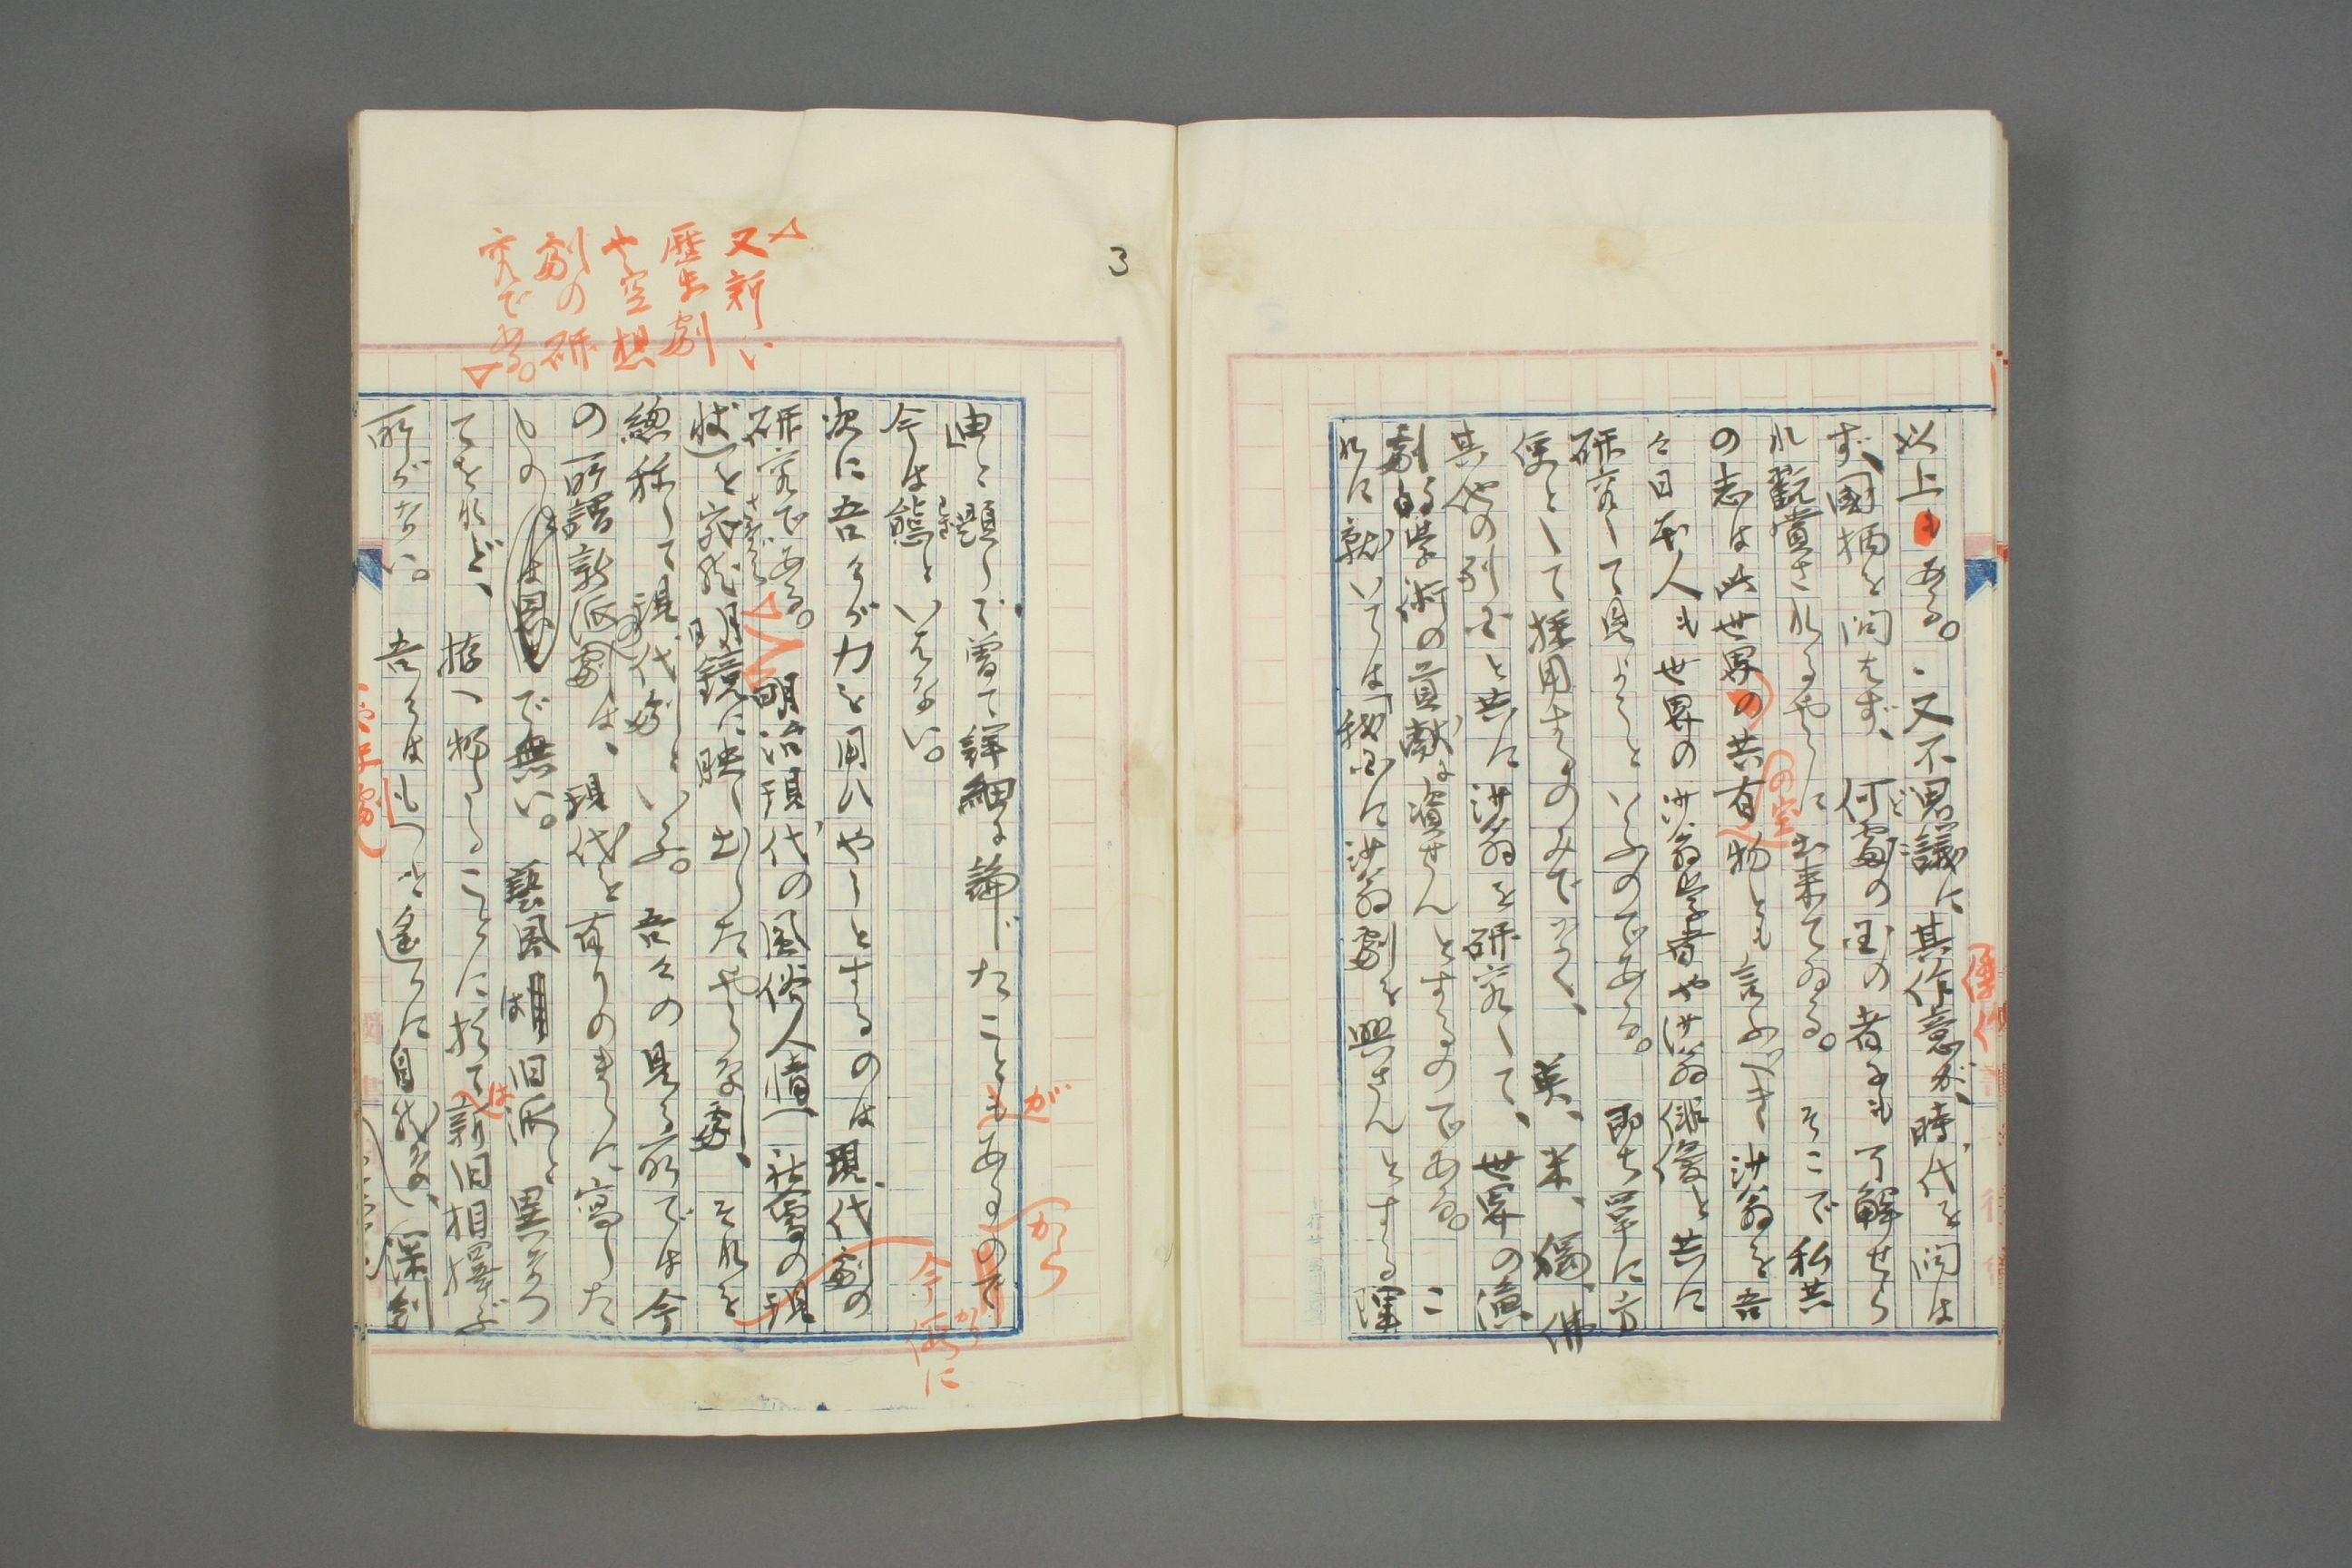 以上もある。又不思議に其作意が、時代を問は
ず、國柄を問はず、何處の国の者にも了解せら
れ觀賞されるやうに出来てゐる。そこで私共
の志は此世界の共有物とも言ふべき沙翁を吾
の宝
々日本人も世界の沙翁学者や沙翁俳優と共に
研究して見ようといふのである。即ち単に方
便として採用するのみでなく、英、米、獨、佛
其他の列国と共に沙翁を研究して、世界の演
劇的学術の貢献に資せんとするのである。こ
れに就いては「我国に沙翁劇を興さんとする理
3
由」と題して曽て詳細に論じたこともあるので
が
から
今は態といはない。
次に吾々が力を用ひやうとするのは現代劇の
今
仮に
研究である。明治現代の風俗人情、社會の現
状を宛然明鏡に映し出したやうな劇、それを
總称して現代劇といふ。吾々の見る所では今
の所謂新派劇は、現代を有りのまゝに寫した
もので無い。藝風は旧派と異つ
てをれど、据ゑ物たることに於ては新旧相擇ぶ
所がない。吾々はもつと遙かに自然な、深刻
又新い
歴史劇
や空想
劇の研
究である。